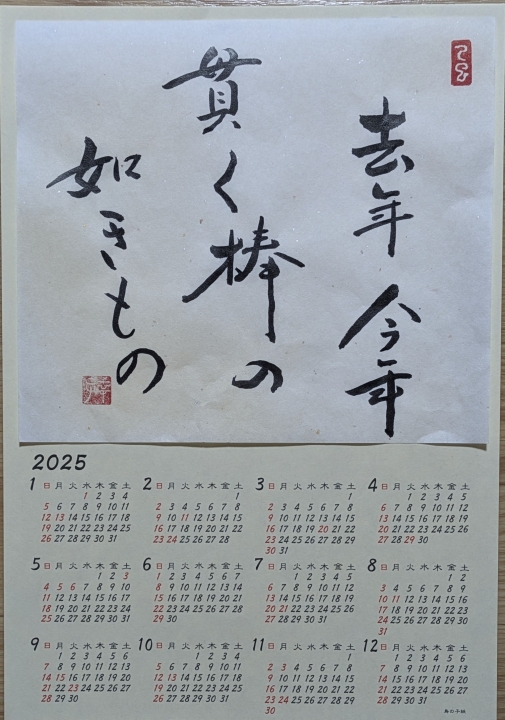 去年今年
貫く棒の
如きもの
2025
1 日 月 火 水 木 金 土
1 2 3 4
5 6 7 8 9 10 11
12 13 14 15 16 17 18
19 20 21 22 23 24 25
26 27 28 29 30 31
2 日 月 火 水 木 金 土
1
2 3 4 5 6 7 8
9 10 11 12 13 14 15
16 17 18 19 20 21 22
23 24 25 26 27 28
3 日 月 火 水 木 金 土
1
2 3 4 5 6 7 8
9 10 11 12 13 14 15
16 17 18 19 20 21 22
23 24 25 26 27 28 29
30 31
4 日 月 火 水 木 金 土
1 2 3 4 5
6 7 8 9 10 11 12
13 14 15 16 17 18 19
20 21 22 23 24 25 26
27 28 29 30
5 日 月 火 水 木 金 土
1 2 3
4 5 6 7 8 9 10
11 12 13 14 15 16 17
18 19 20 21 22 23 24
25 26 27 28 29 30 31
6 日 月 火 水 木 金 土
1 2 3 4 5 6 7
8 9 10 11 12 13 14
15 16 17 18 19 20 21
22 23 24 25 26 27 28
29 30
7 日 月 火 水 木 金 土
1 2 3 4 5
6 7 8 9 10 11 12
13 14 15 16 17 18 19
20 21 22 23 24 25 26
27 28 29 30 31
8 日 月 火 水 木 金 土
1 2
3 4 5 6 7 8 9
10 11 12 13 14 15 16
17 18 19 20 21 22 23
24 25 26 27 28 29 30
31
9 日 月 火 水 木 金 土
1 2 3 4 5 6
7 8 9 10 11 12 13
14 15 16 17 18 19 20
21 22 23 24 25 26 27
28 29 30
10 日 月 火 水 木 金 土
1 2 3 4
5 6 7 8 9 10 11
12 13 14 15 16 17 18
19 20 21 22 23 24 25
26 27 28 29 30 31
11 日 月 火 水 木 金 土
1
2 3 4 5 6 7 8
9 10 11 12 13 14 15
16 17 18 19 20 21 22
23 24 25 26 27 28 29
30
12 日 月 火 水 木 金 土
1 2 3 4 5 6
7 8 9 10 11 12 13
14 15 16 17 18 19 20
21 22 23 24 25 26 27
28 29 30 31
鳥の子紙